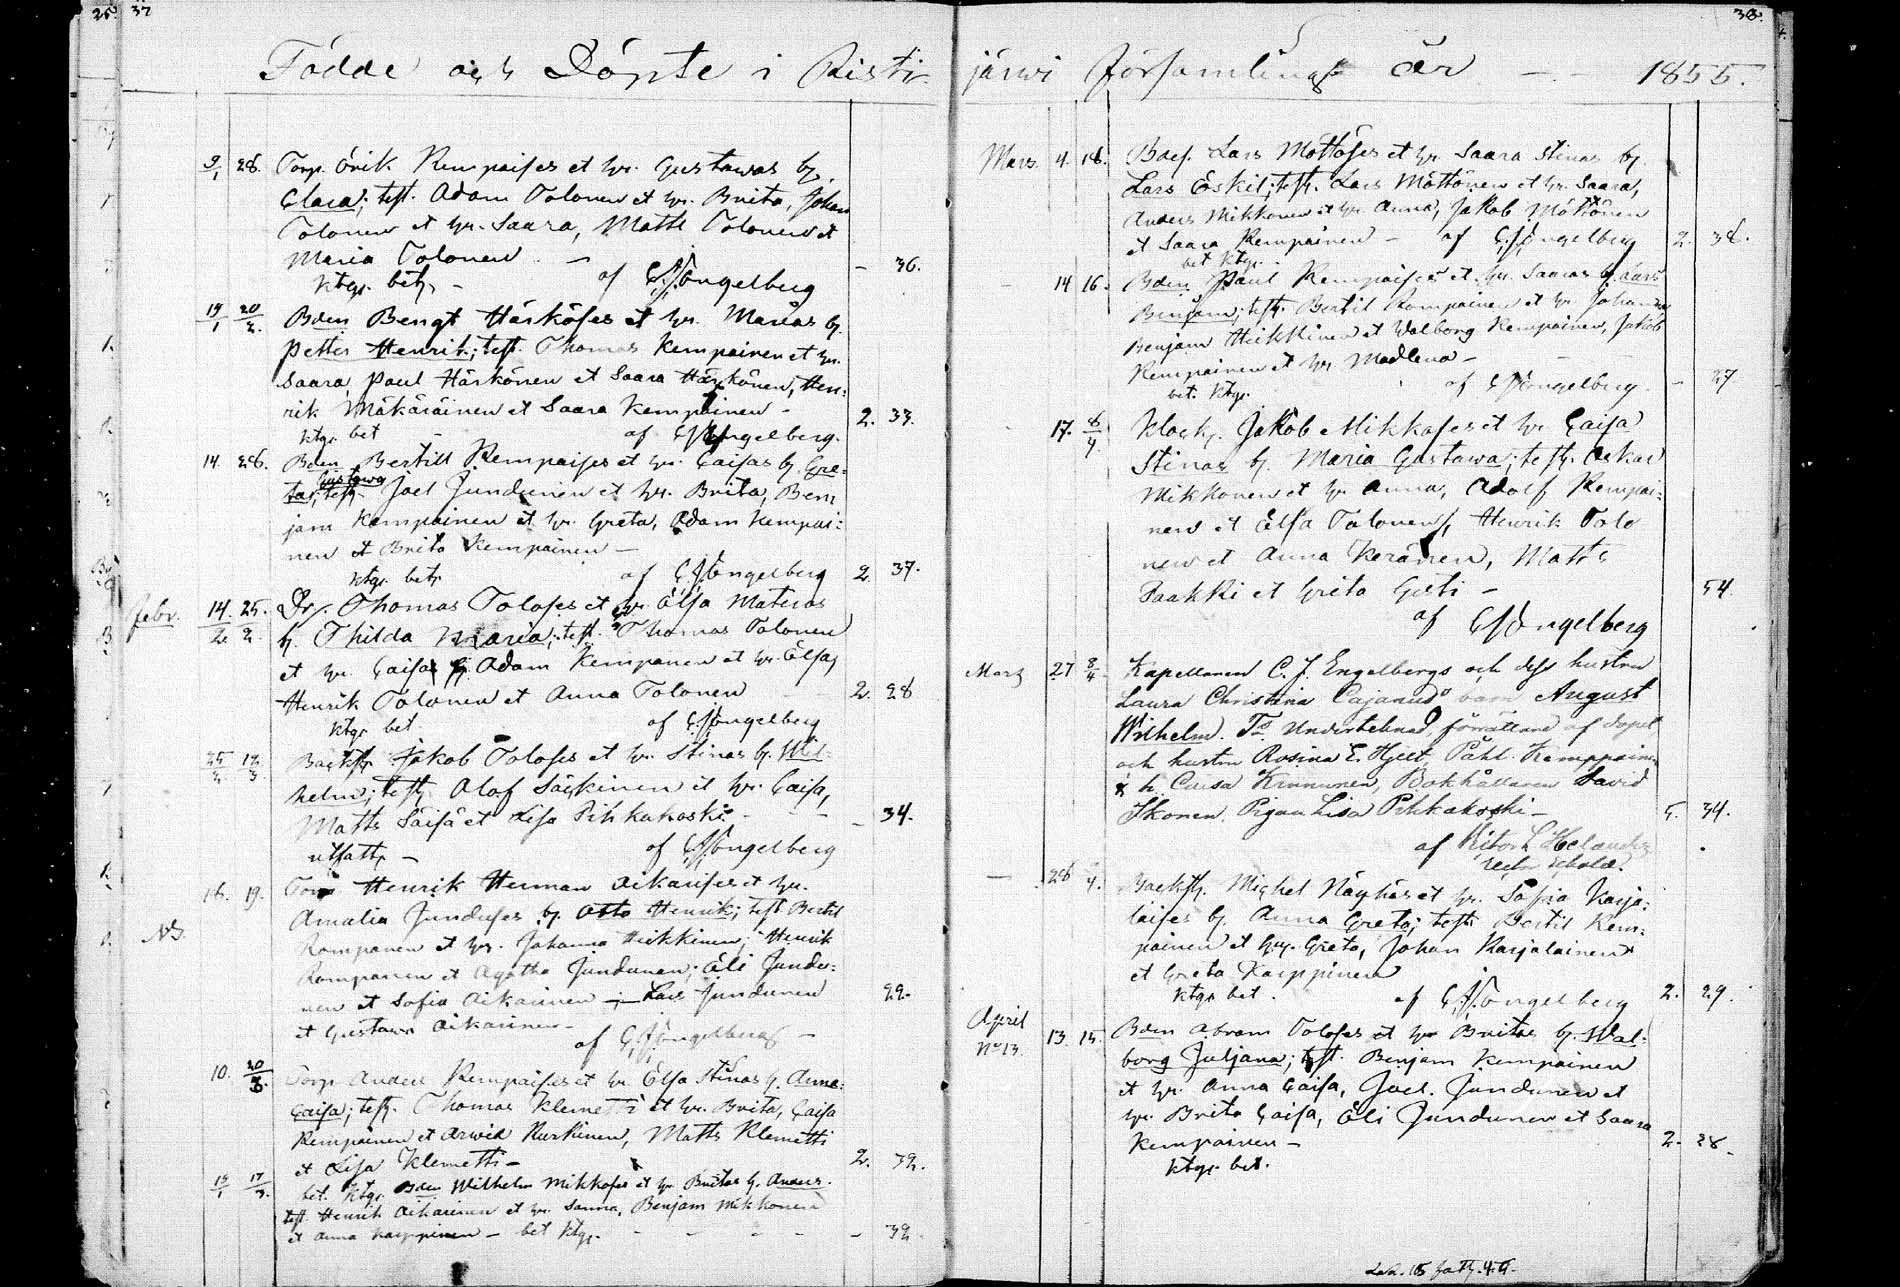 25. 37
38.
Födde och Döpte i Risti-
järwi församling år — 1855.
9/1 28. Torp. Erik Kempaises et hr. Gustawas b.
Clara; test. Adam Tolonen et hr. Brita, Johan
Tolonen et hr. Saara, Matts Tolonen et
Maria Tolonen — 36.
ktgr. bet. — af CJEngelberg
19/1 20/2. Bden Bengt Härköses et hr. Marias b.
Petter Henrik; test. Thomas Kempainen et hr.
Saara, Paul Härkönen et Saara Härkönen, Hen-
rik Mäkäräinen et Saara Kempainen — 2. 33.
ktgr. bet — af CJEngelberg.
14. 26. Bden Bertill Kempaises et hr. Caisas b. Gre-
Gustawa
tas; test. Joel Jundunen et hr. Brita, Ben
jam Kempainen et hr. Greta, Adam Kempai-
nen et Brita Kempainen —
ktgr. bet. af CJEngelberg 2. 37.
Febr. 14/2. 25/2. Dr. Thomas Toloses et hr. Elsa Materas
b. Thilda Maria; test. Thomas Tolonen
et hr. Caisa, Adam Kempanen et hr. Elsa,
Henrik Tolonen et Anna Tolonen 2. 28
ktgr bet af CJEngelberg
25/2. 12/3. Backst. Jakob Toloses et hr. Stinas b. Wil-
helm; test. Olof Säckinen et hr. Caisa,
Matts Säisä et Lisa Pihkakoski — — 34.
utfatt. — af CJEngelberg
16. 19. Torp Henrik Herman Aikarises et hr.
Amalia Junduses b. Otto Henrik; test Bertil
NB. Rompanen et hr. Johanna Heikkinen, Henrik
Rompanen et Agatha Jundunen; Eli Jundu-
nen et Sofia Aikarinen — Lars Jundunen 22.
et Gustawa Aikarinen —
af CJEngelberg —
10. 20/3. Torp Anders Kempaises et hr. Elsa Stinas b. Anna
Caisa; test. Thomas Klemetti et hr. Brita, Caisa
Kempainen et Arwid Kurkinen, Matts Klemetti
et Lisa Klemetti — 2. 32.
bet. ktgr.
15/1 17/3. Bden Wilhelm Mikkoses et hr Britas b. Anders.
test. Henrik Aikarinen et hr. Sanna, Benjam Mikkonen
et Anna Karppinen — bet ktgr. — 32.
Mars. 4. 18. Bdes. Lars Möttöses et hr. Saara Stinas b.
Lars Eskil; test. Lars Möttönen et hr. Saara,
Anders Mikkonen et hr Anna, Jakob Möttönen
et Saara Kempainen — af CJEngelberg 2. 38.
bet ktgr.
14 16. Bden Paul Kempaises et hr. Saaras b. Lars
Benjam; test. Bertil Rompainen et hr Johanna
Benjam Heikkinen et Walborg Kempainen, Jakob
Kempainen et hr Madlena —
bet. ktgr. af CJEngelberg. — 27
17. 8/4 Klock. Jakob Mikkoses et hr Caisa
Stinas b. Maria Gustawa; test. Oskar
Mikkonen et hr Anna, Adolf Kempai-
nen et Elsa Tolonen, Henrik Tolo
nen et Anna Keränen, Matts
Paakki et Greta — 54.
af CJEngelberg
Mars 27 8/4 Kapellanen C. J. Engelbergs och dess hustru
Laura Christina Cajanus barn August
Wilhelm. Ts. Undertecknad, förrättare af dopet
och hustru Rosina E. Hjelt, Påhl Kemppainen
& h. Caisa Kinnunen, Bokhållaren David
Ikonen Pigan Lisa Pihkakoski — 5. 34.
af Kitor L Helander
28 4. Backst. Michel Näyhäs et hr. Sofia Karja-
laises b. Anna Greta; test. Bertil Kem-
painen et hr. Greta, Johan Karjalainen
et Greta Karppinen
ktgr bet. af CJEngelberg 2. 29.
April
No 13. 13. 15. Bden Abram Toloses et hr Britas b. Wal-
borg Juljana; test. Benjam Kempainen
et hr. Anna Caisa, Joel. Jundunen et
hr. Brita Caisa, Eli Jundunen et Saara
Kempainen — 2. 28.
ktgr. bet.